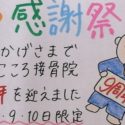 感謝祭
かげさまで
こころ接骨院
を迎えました
・9・10日限定
9周年